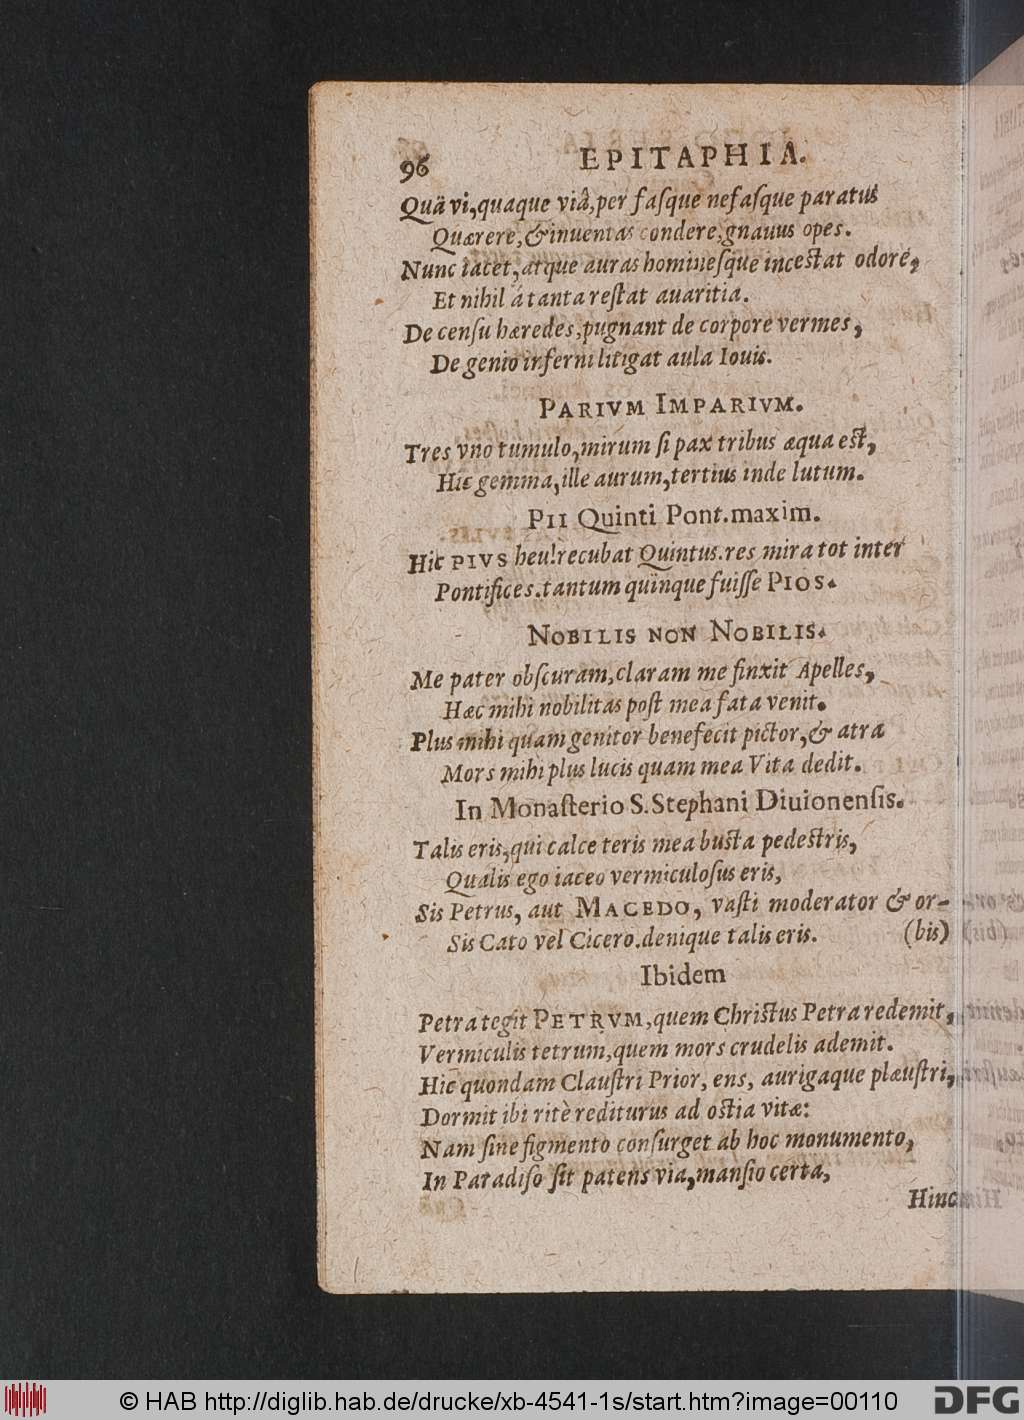 96 EPITAPHIA.
Quâ vi, quaque viâ, per faſque nefaſque paratus
Quærere, & inuentas condere, gnauus opes.
Nunc iacet, atque auras hominesſque inceſtat odore,
Et nihil á tanta reſtat auaritia.
De cenſu hæredes, pugnant de corpore vermes,
De genio inferni litigat aula Iouis.
PARIVM IMPARIVM.
Tres vno tumulo, mirum ſi pax tribus æqua eſt,
Hic gemma, ille aurum, tertius inde lutum.
PII Quinti Pont. maxim.
Hic PIVS heu! recubat Quintus. res mira tot inter
Pontifices. tantum quinque fuiſſe PIOS.
NOBILIS NON NOBILIS.
Me pater obſcuram, claram me finxit Apelles,
Hæc mihi nobilitas poſt mea fata venit.
Plus mihi quam genitor benefecit pictor, & atra
Mors mihi plus lucis quam mea Vita dedit.
In Monaſterio S. Stephani Diuionenſis.
Talis eris, qui calce teris mea buſta pedeſtris,
Qualis ego iaceo vermiculoſus eris,
Sis Petrus, aut MACEDO, vaſti moderator & or-
Sis Cato vel Cicero. denique talis eris. (bis)
Ibidem
Petra tegit PETRVM, quem Chriſtus Petra redemit,
Vermiculis tetrum, quem mors crudelis ademit.
Hic quondam Clauſtri Prior, ens, aurigaque plæuſtri,
Dormit ibi ritè rediturus ad oſtia vitæ:
Nam ſine figmento conſurget ab hoc monumento,
In Paradiſo ſit patens via, manſio certa,
Hinc
© HAB http://diglib.hab.de/drucke/xb-4541-1s/start.htm?image=00110
DFG